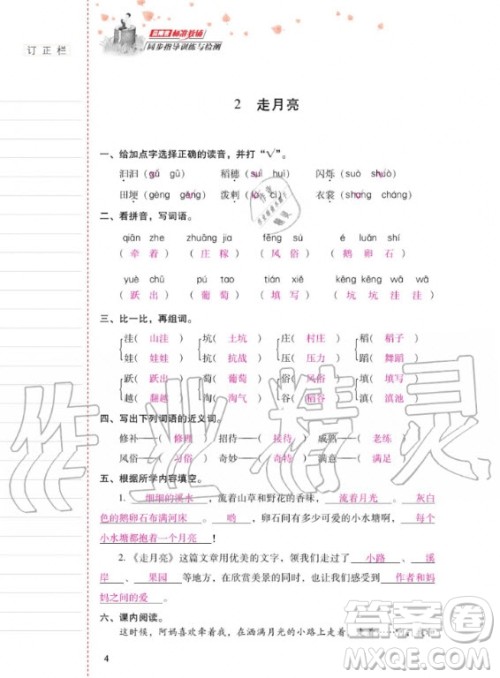 订正栏
同步指导训练与检测
2 走月亮
一、给加点字选择正确的读音，并打“√”。
汩汩（gǔ gū） 稻穗（suì huì） 闪烁（suò shuò）
田埂（gěng） 泼剌（là cì） 衣裳（shang cháng）
二、看拼音，写词语。
qiān zhe zhuāng jia fēng sú é luǎn shí
（牵着）（庄稼）（风俗）（鹅卵石）
yuè chū pú tao tián xiě kēng keng wā wā
（跃出）（葡萄）（填写）（坑坑洼洼）
三、比一比，再组词。
洼（山洼） 坑（土坑） 庄（村庄） 稻（稻子）
娃（娃娃） 抗（抗战） 压（压力） 蹈（舞蹈）
跃（跃出） 萄（葡萄） 俗（风俗） 填（填写）
越（翻越） 淘（淘气） 谷（稻谷） 滇（滇池）
四、写出下列词语的近义词。
修补——（修理） 招待——（接待） 成熟——（老练）
风俗——（习俗） 奇妙——（奇特） 满意——（满足）
五、根据所学内容填空。
1. 细细的溪水，流着山草和野花的香味，流着月光。灰白
色的鹅卵石布满河床。哟，卵石间有多少可爱的小水塘啊，每个
小水塘都抱着一个月亮！
2.《走月亮》这篇文章用优美的文字，领我们走进了小路、溪
岸、果园等地方，在欣赏美景的同时，也让我们体会到作者和妈
妈之间的爱。
六、课内阅读。
这时候，阿妈喜欢牵着我，在洒满月光的小路上走着，走着
4
作业精灵
答案圈
MXQE.COM